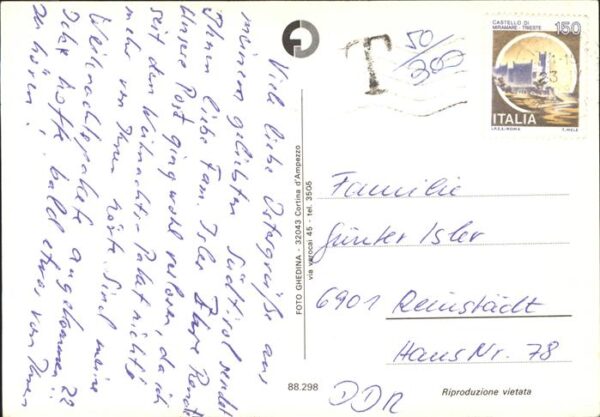 Viele liebe Ostergrüße aus
meinem geliebten Südtirol sendet
Ihnen liebe Fam. Isler Ihre Renate
Unsere Post ging wohl verloren, da ich
seit dem Weihnachts-Paket nichts
mehr von Ihnen hörte. Sind meine
Weihnachtspakete angekommen? 22
Ich hoffe bald etwas von Ihnen
zu hören!
T
50/300
CASTELLO DI
MIRAMARE - TRIESTE
150
ITALIA
I.P.Z.S.-ROMA
23
FOTO GHEDINA - 32043 Cortina d'Ampezzo
via varocai 45 - tel. 3506
Familie
Günter Isler
6901 Reinstädt
Haus Nr. 78
DDR
88.298
Riproduzione vietata